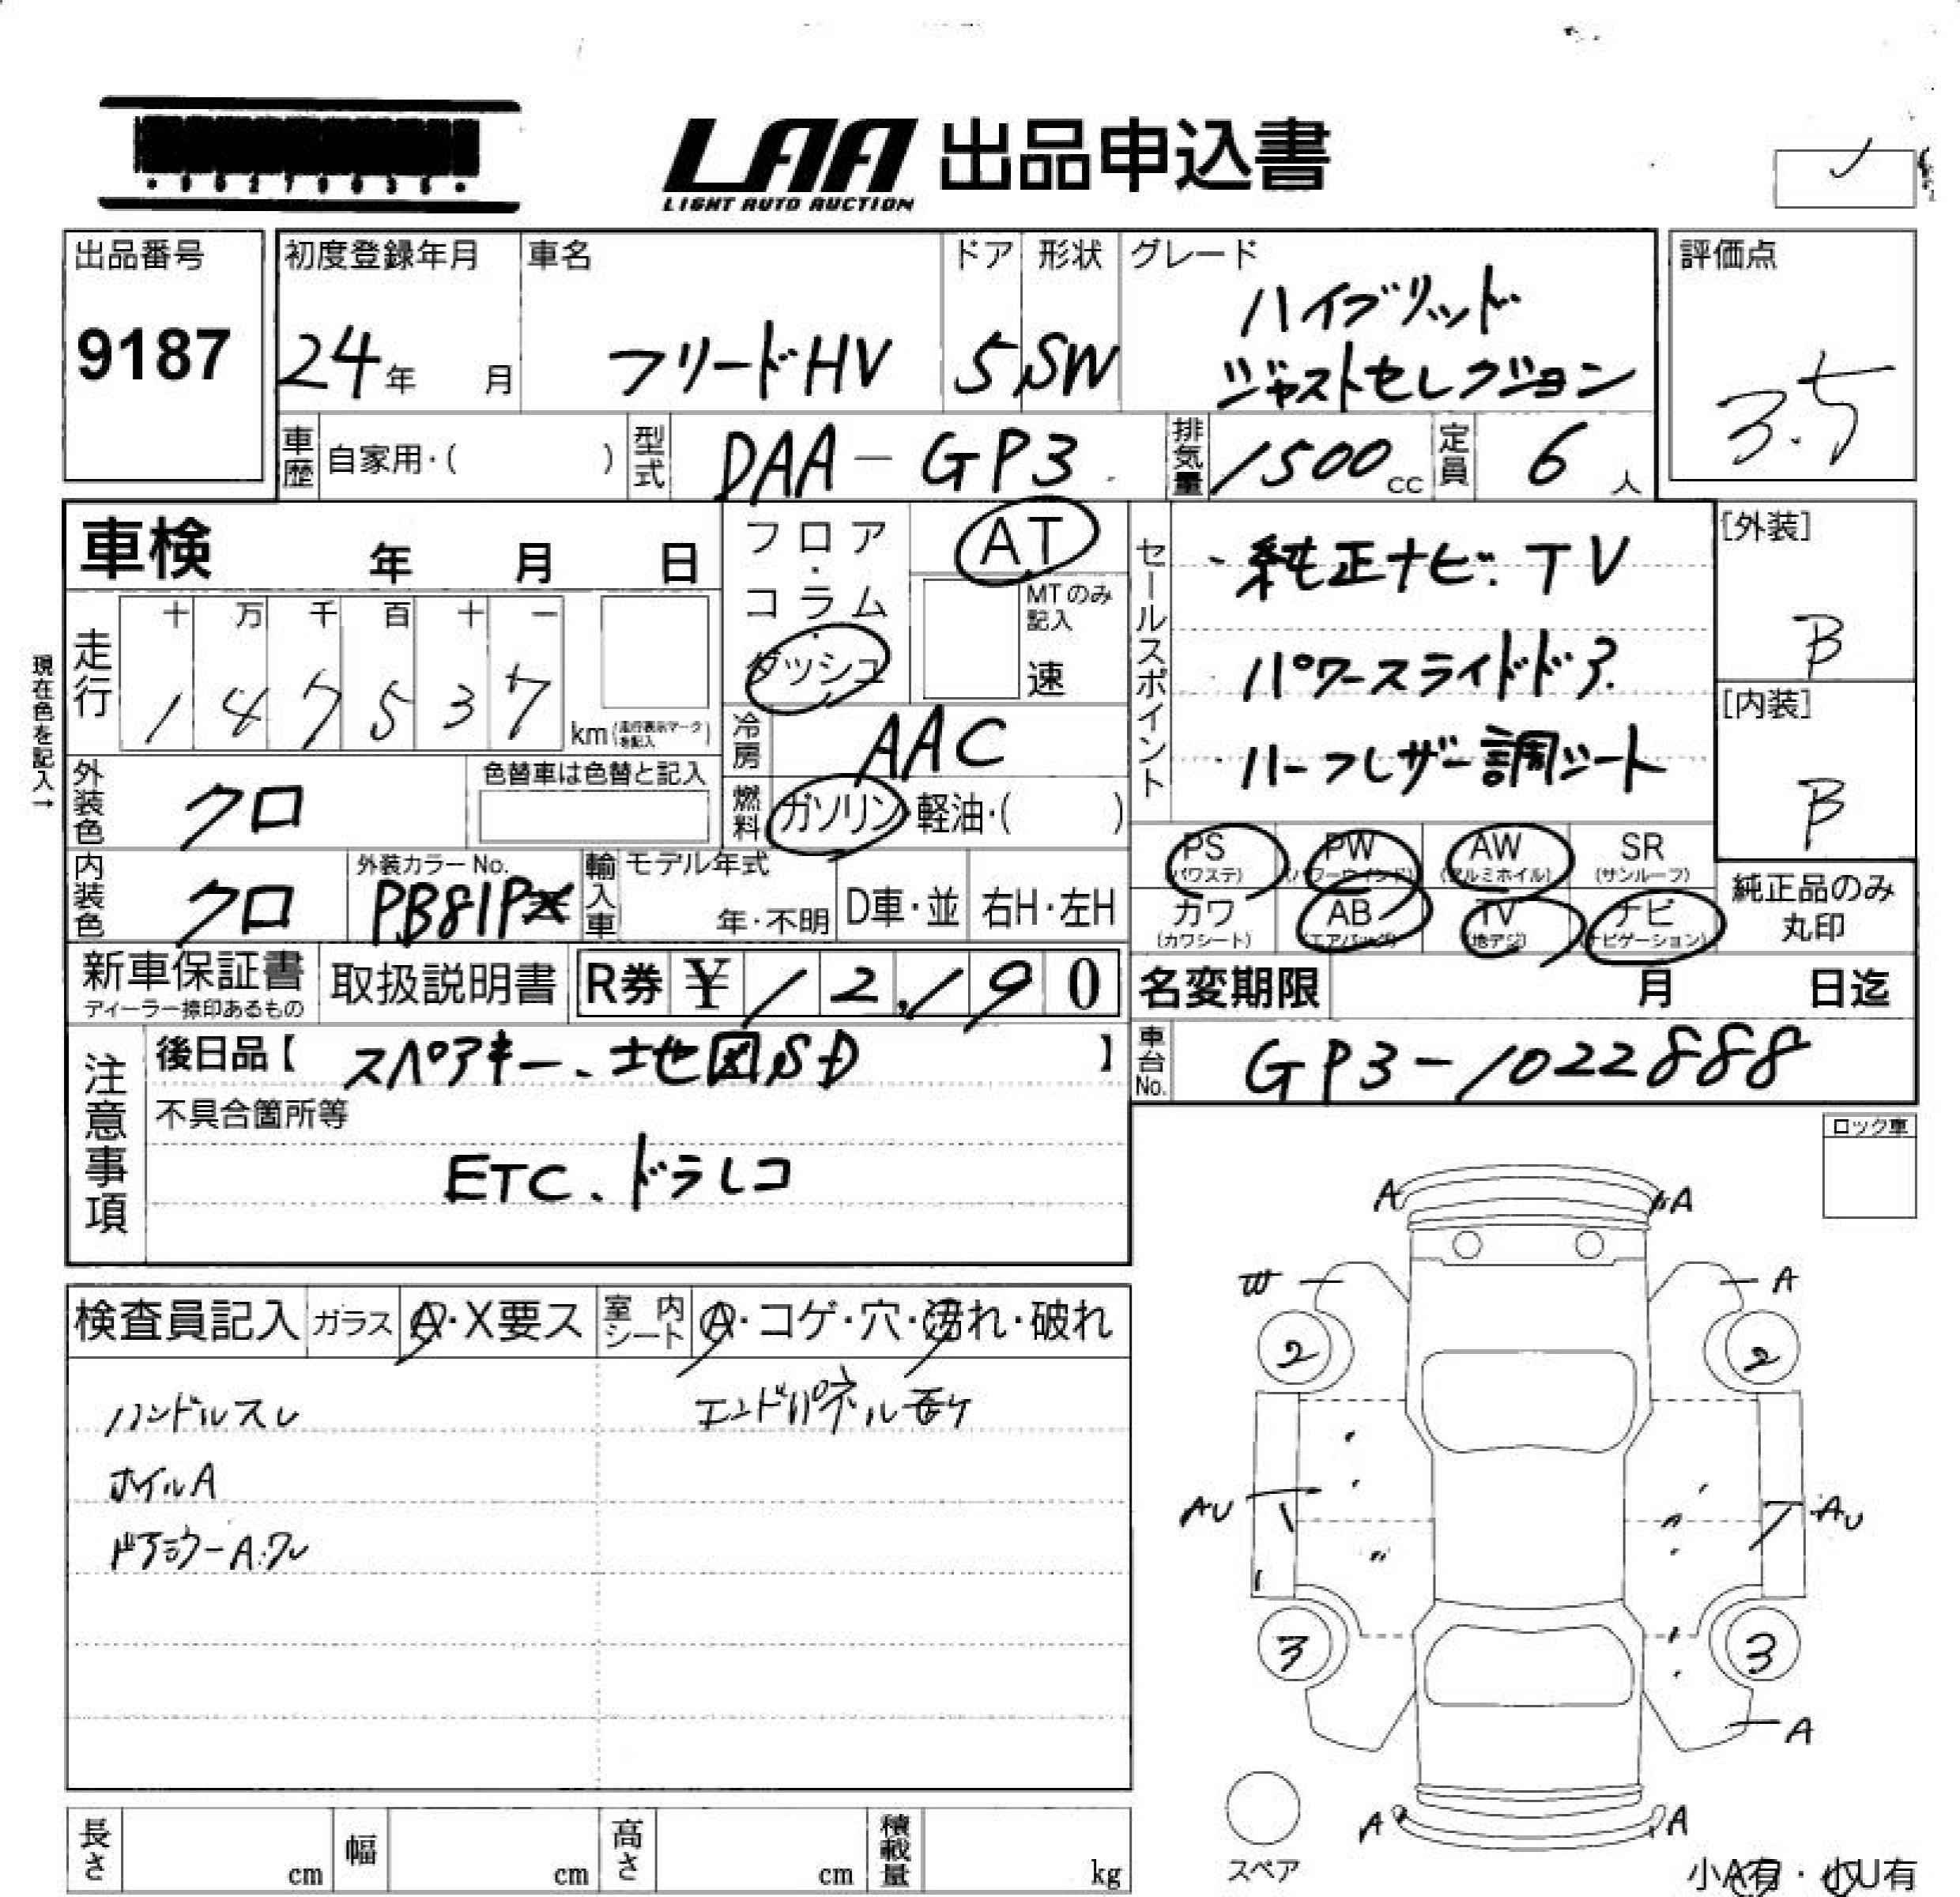 LAA 出品申込書
LIGHT AUTO AUCTION
出品番号
9187
初度登録年月
24年 月
車名
フリードHV
ドア
5
形状
SW
グレード
ハイブリッド
ジャストセレクション
評価点
3.5
車歴 自家用・( )
型式 DAA-GP3
排気量 1500cc
定員 6人
車検 年 月 日
フロア・コラム・ダッシュ
AT
MTのみ記入
速
セールスポイント
・純正ナビ.TV
パワースライドドア.
・ハーフレザー調シート
[外装]
B
[内装]
B
現在色を記入→
走行
十 万 千 百 十 一
1 4 7 5 3 7
km(走行表示マークを記入)
冷房 AAC
外装色 クロ
色替車は色替と記入
燃料 ガソリン・軽油・( )
内装色 クロ
外装カラーNo.
PB81P
輸入車 モデル年式
年・不明
D車・並
右H・左H
PS (パワステ)
PW (パワーウインド)
AW (アルミホイル)
SR (サンルーフ)
カワ (カワシート)
AB (エアバッグ)
TV (地デジ)
ナビ (ナビゲーション)
純正品のみ
丸印
新車保証書
ディーラー捺印あるもの
取扱説明書
R券 ¥ 12,190
名変期限 月 日迄
車台No. GP3-1022888
注意事項
後日品【 スペアキー、地図SD 】
不具合箇所等
ETC、ドラレコ
ロック車
検査員記入
ガラス A・X要ス
室内シート A・コゲ・穴・汚れ・破れ
ハンドルスレ
エンドパネル
ホイルA
ドアミラーA.ワレ
A
A
W
A
2
2
AU
AU
3
3
A
A
A
スペア
小A有・小U有
長さ cm
幅 cm
高さ cm
積載量 kg